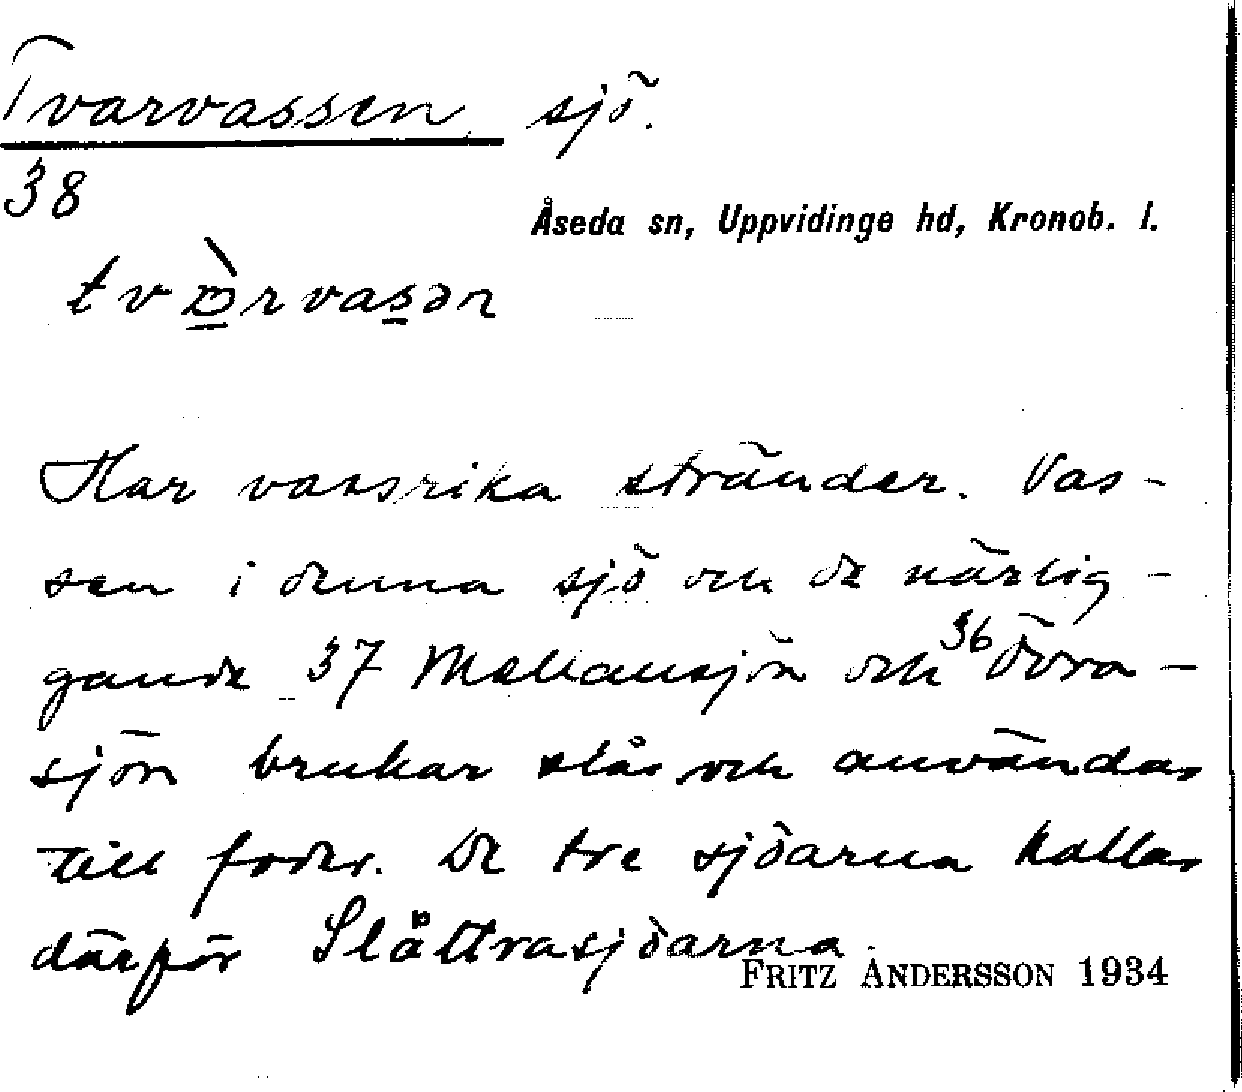 Tvarvassen sjö.
38
Åseda sn, Uppvidinge hd, Kronob. l.
Har vassrika stränder. Vas-
sen i denna sjö och de närlig-
gande 37 Mellansjön och 36 Övra-
sjön brukar slås och användas
till foder. De tre sjöarna kallas
därför Slåttrasjöarna.
FRITZ ANDERSSON 1934